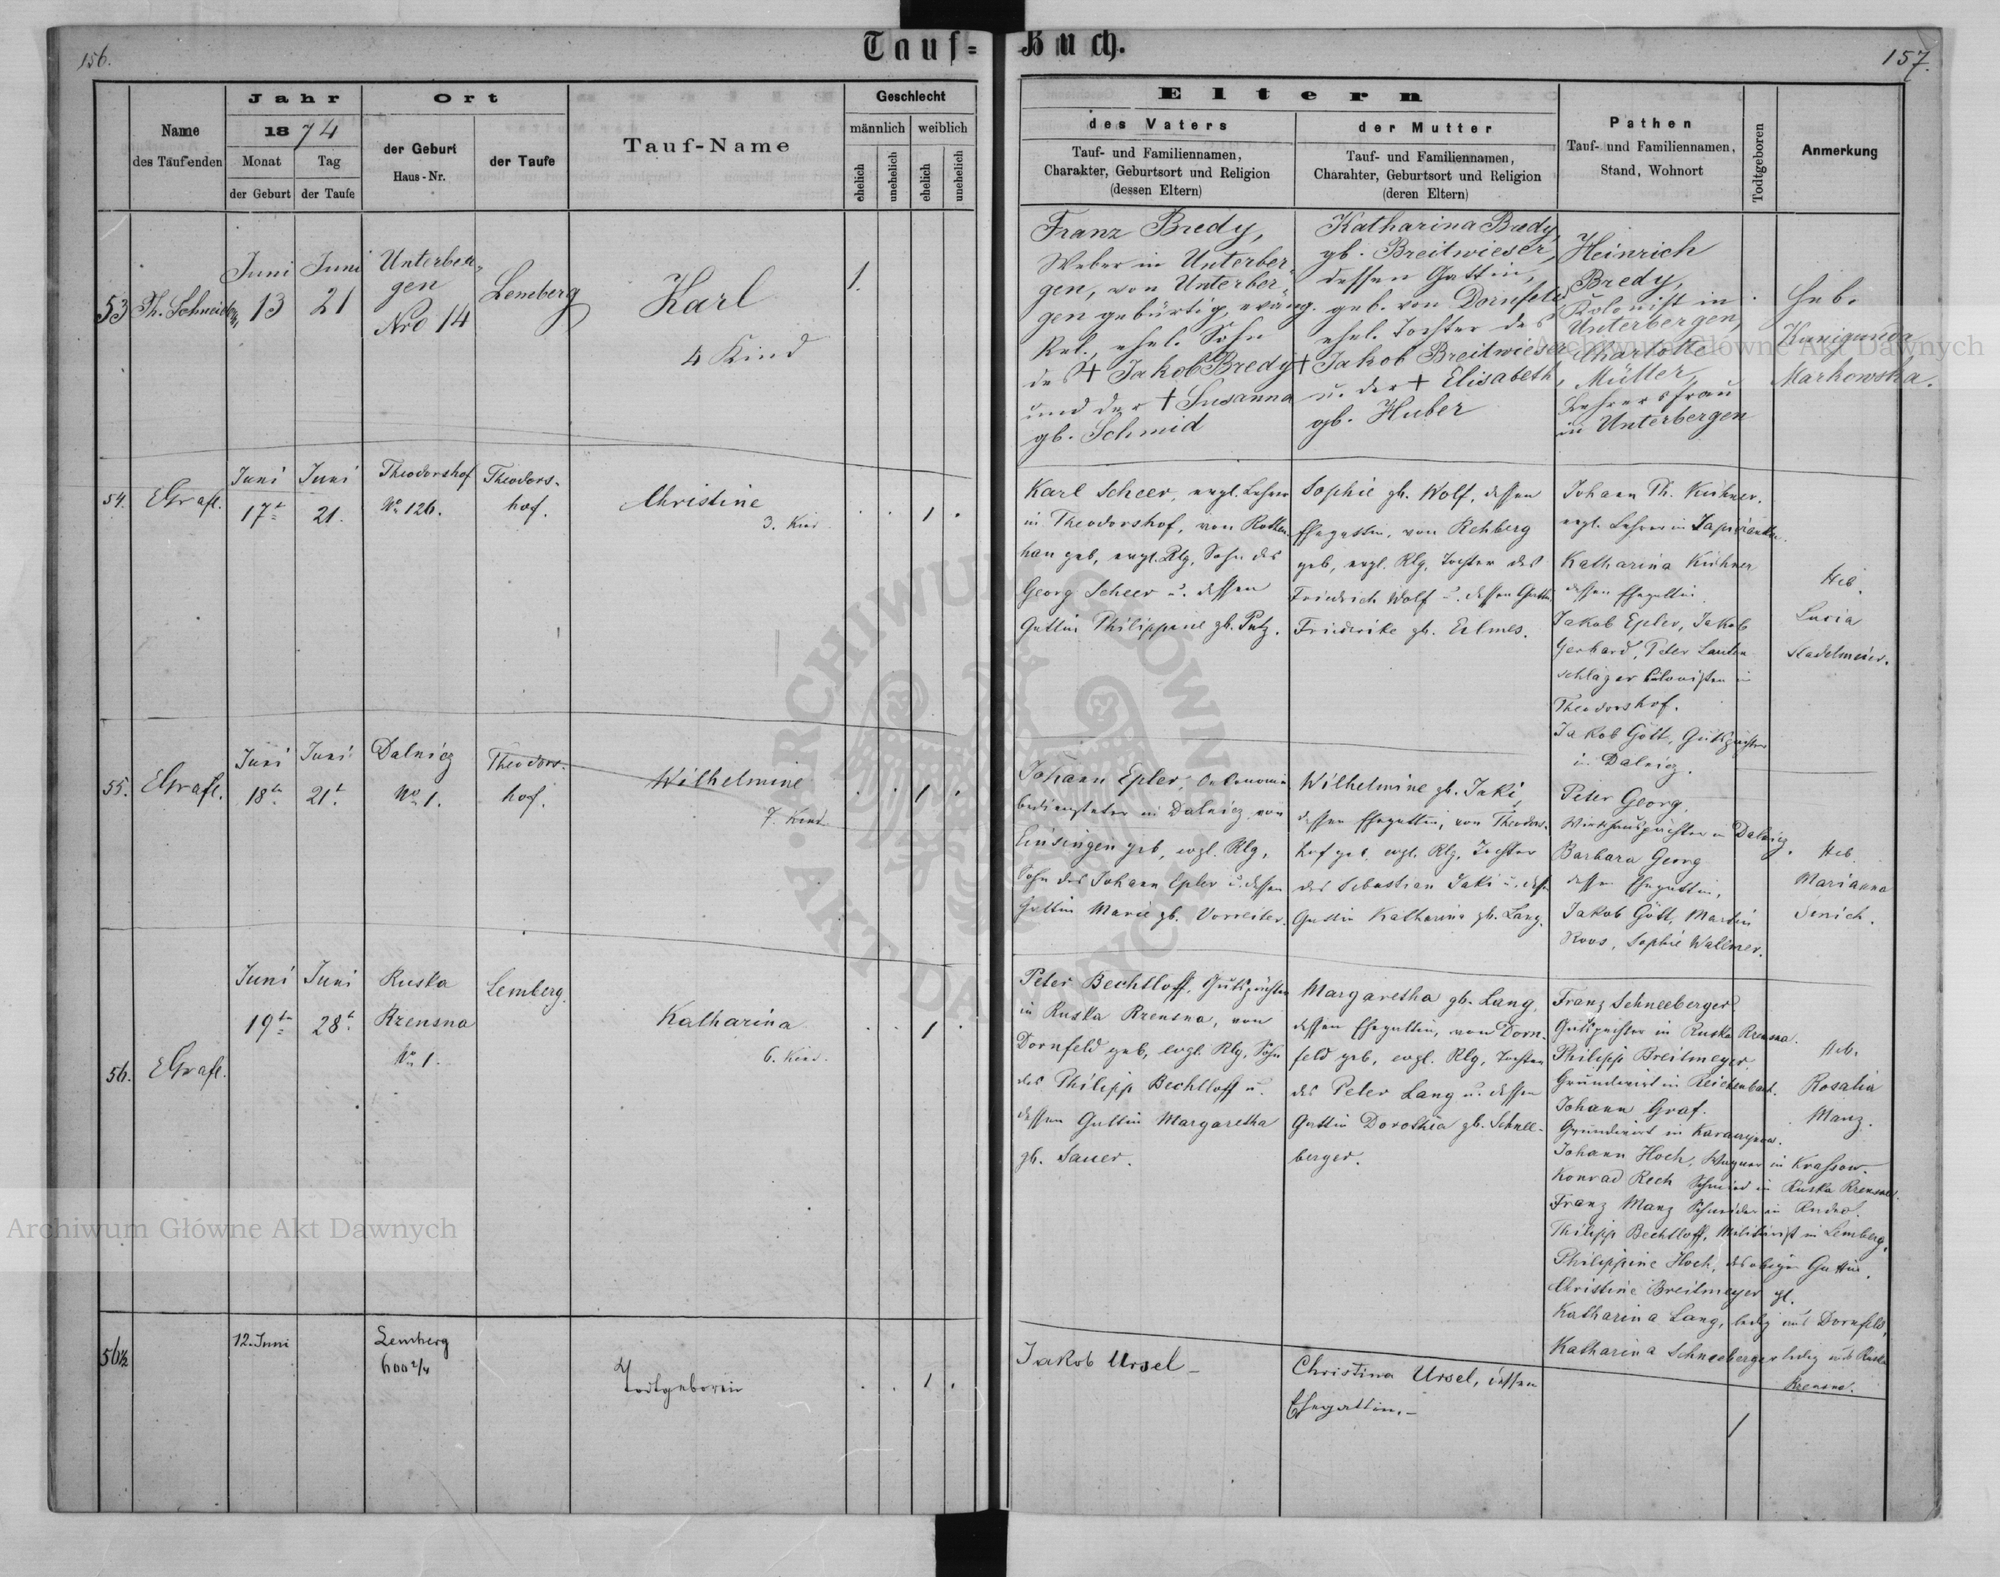 156.
Tauf=
Buch.
157.
Name
des Taufenden
Jahr
1874
Monat
Tag
der Geburt
der Taufe
Ort
der Geburt
Haus-Nr.
der Taufe
Tauf-Name
Geschlecht
männlich
weiblich
ehelich
unehelich
ehelich
unehelich
Eltern
des Vaters
Tauf- und Familiennamen,
Charakter, Geburtsort und Religion
(dessen Eltern)
der Mutter
Tauf- und Familiennamen,
Charahter, Geburtsort und Religion
(deren Eltern)
Pathen
Tauf- und Familiennamen,
Stand, Wohnort
Todtgeboren
Anmerkung
53
Th. Schneider
Juni
13
Juni
21
Unterber-
gen
Nro 14
Lemberg
Karl
4 Kind
1.
Franz Bredy,
Weber in Unterber-
gen, von Unterber-
gen gebürtig, evang.
Rel., ehel. Sohn
des † Jakob Bredy
und der † Susanna
gb. Schmid
Katharina Bredy
gb. Breitwieser,
dessen Gattin,
geb. von Dornfeld
ehel. Tochter des
† Jakob Breitwieser
u. der † Elisabeth
gb. Huber
Heinrich
Bredy,
Kolonist in
Unterbergen,
Charlotte
Müller,
Lehrersfrau
in Unterbergen
Heb.
Kunigunda
Markowska.
54.
EGrafl.
Juni
17t
Juni
21.
Theodorshof
No 126.
Theodors-
hof.
Christine
3. Kind
1
Karl Scheer, evgl. Lehrer
in Theodorshof, von Rotten-
han geb, evgl. Rlg, Sohn des
Georg Scheer u. dessen
Gattin Philippine gb. Putz.
Sophie gb. Wolf, dessen
Ehegattin, von Rehberg
geb, evgl. Rlg, Tochter des
Friedrich Wolf u. dessen Gattin
Friederike gb. Eelmes.
Johann Ph. Kühner,
evgl. Lehrer in
Katharina Kühner
dessen Ehegattin
Jakob Epler, Jakob
Gerhard, Peter Lauten
schläger Colonisten in
Theodorshof.
Jakob Gött, Gutspächter
in Dalnicz.
Heb.
Lucia
Stadelmeier.
55.
EGrafl.
Juni
18t
Juni
21t
Dalnicz
No 1.
Theodors-
hof.
Wilhelmine
7. Kind
1
Johann Epler, Oekonomie
bediensteter in Dalnicz, von
Einsingen geb, evgl. Rlg,
Sohn des Johann Epler u. dessen
Gattin Marie gb. Vorreiter.
Wilhelmine gb. Jaki,
dessen Ehegattin, von Theodors-
hof geb, evgl. Rlg, Tochter
des Sebastian Jaki u. dessen
Gattin Katharina gb. Lang.
Peter Georg,
Wirthshauspächter in Dalnicz.
Barbara Georg
dessen Ehegattin,
Jakob Gött, Martin
Roos, Sophie Wallmer.
Heb.
Marianna
Senich.
56.
EGrafl.
Juni
19t
Juni
28t
Ruska
Krensna
No 1.
Lemberg.
Katharina
6. Kind.
1
Peter Bechtloff, Gutspächter
in Ruska Krensna, von
Dornfeld geb, evgl. Rlg, Sohn
des Philipp Bechtloff u.
dessen Gattin Margaretha
gb. Sauer.
Margaretha gb. Lang,
dessen Ehegattin, von Dorn-
feld geb, evgl. Rlg, Tochter
des Peter Lang u. dessen
Gattin Dorothea gb. Schnee-
berger.
Franz Schneeberger
Gutspächter in Ruska Krensna.
Philipp Breitmeyer
Grundwirt in Reichenbach.
Johann Graf.
Grundwirt in
Johann Hoch, Wagner in Krassow.
Konrad Rech Schmied in Ruska Krensna.
Franz Manz Schneider in
Philipp Bechtloff, Militärist in Lemberg,
Philippine Hoch, des obigen Gattin,
Christine Breitmeyer gl.
Katharina Lang, ledig aus Dornfeld,
Katharina Schneeberger ledig aus Ruska
Krensna.
Heb.
Rosalia
Manz.
56½
12. Juni
Lemberg
600 2/4
Todtgeboren
1
Jakob Ursel –
Christina Ursel, dessen
Ehegattin. –
1
Archiwum Główne Akt Dawnych
Archiwum Główne Akt Dawnych
ARCHIWUM GŁÓWNE AKT DAWNYCH